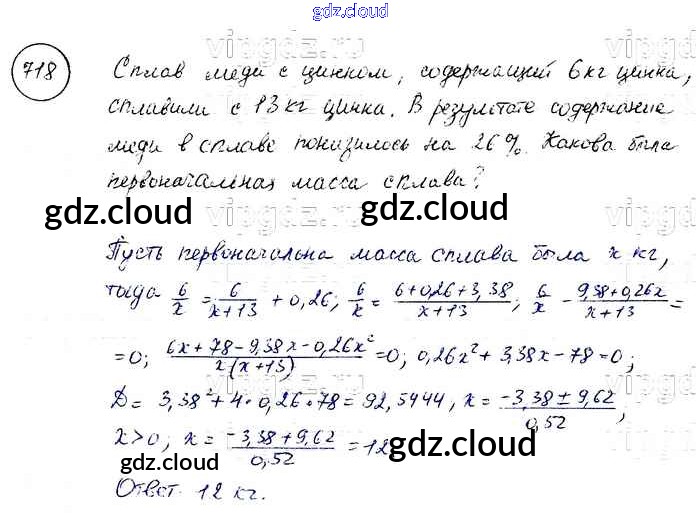 gdz.cloud
718
Сплав меди с цинком, содержащий 6 кг цинка,
сплавили с 13 кг цинка. В результате содержание
меди в сплаве понизилось на 26%. Какова была
первоначальная масса сплава?
gdz.cloud gdz.cloud
Пусть первоначальна масса сплава была x кг,
тогда 6/x = 6/(x+13) + 0,26; 6/x = (6+0,26+3,38)/(x+13); 6/x - (9,38+0,26x)/(x+13) =
= 0; (6x+78-9,38x-0,26x²)/(x(x+13)) = 0; 0,26x²+3,38x-78=0;
D = 3,38²+4·0,26·78 = 92,5444, x = (-3,38±9,62)/0,52;
x>0; x = (-3,38+9,62)/0,52 = 12
gdz.cloud gdz.cloud
Ответ 12 кг.